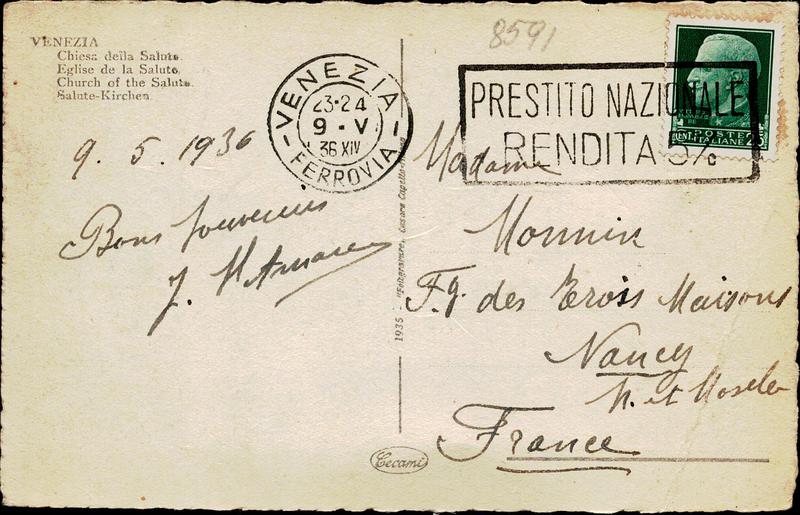 VENEZIA
Chiesa della Salute.
Eglise de la Salute.
Church of the Salute.
Salute-Kirchen.
9. 5. 1936
Bons souvenirs
J.
VENEZIA
23-24
9 - V
36 XIV
FERROVIA
8591
PRESTITO NAZIONALE
RENDITA 5%
POSTE
ITALIANE
CENT. 25
Madame
Monnin
Fg. des Trois Maisons
Nancy
M. et Moselle
France
1935 - "Fotogravure, Cesare Capello
Cecami